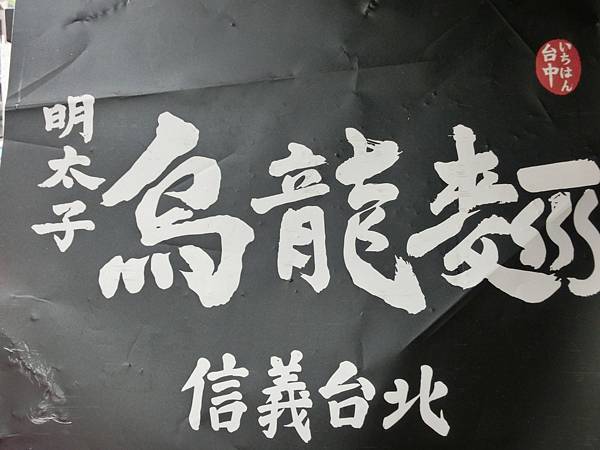 明太子
烏龍麵
いちばん
台中
信義台北